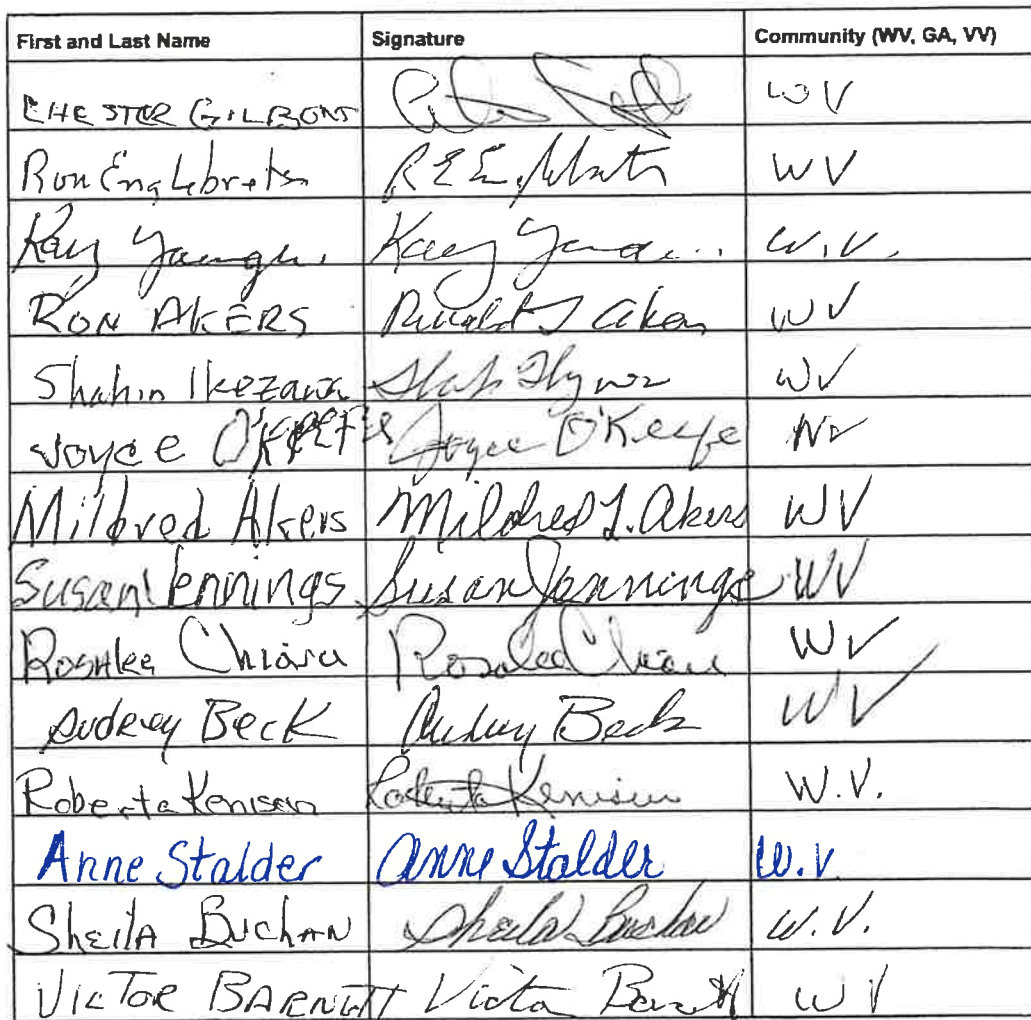 First and Last Name Signature Community (WV, GA, VV)
CHESTER WV
Ron Englebretsn WV
Kay W.V.
RON AKERS Ronald J Akers WV
Shahin Ikezawa WV
Joyce O'KEEFE Joyce O'Keefe
Mildred Akers Mildred L. Akers WV
Susan Jennings Susan Jennings WV
Rosalee Chiara Rosalee Chiara WV
Audrey Beck Audrey Beck WV
Roberta Kenison Roberta Kenison W.V.
Anne Stalder Anne Stalder W.V.
SheilA BuchAN Sheila Buchan W.V.
VICTOR BARNETT Victor Barnett WV